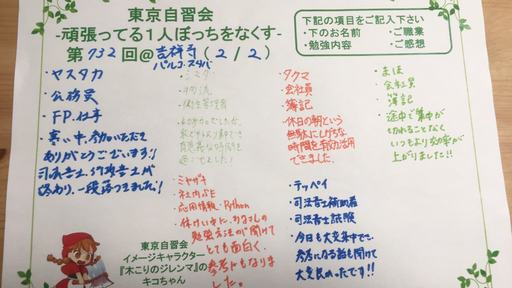 東京自習会
-頑張ってる1人ぼっちをなくす-
第732回@吉祥寺(2/2)
パルコ・スタバ
下記の項目をご記入下さい
・下のお名前 ・ご職業
・勉強内容 ・ご感想
・ヤスタカ
・公務員
・FP、仕事
・寒い中、参加いただき
ありがとうございます!!
司法書士、行政書士が
終わり、一段落つきました!
・タクマ
・会社員
・簿記
・休日の朝という
無駄にしがちな
時間を有効活用
できました。
・まほ
・会社員
・簿記
・途中で集中が
切れることなく
いつもより効率が
上がりました!!
・ミヤザキ
・社内SE
・応用情報・Python
・休けい中に、みなさんの
勉強方法が聞けて
とても面白く、
参考にもなりま
した。
・テッペイ
・司法書士補助者
・司法書士試験
・今日も大変集中でき、
参考になる話も聞けて
大変良かったです!!
東京自習会
イメージキャラクター
『木こりのジレンマ』の
キコちゃん